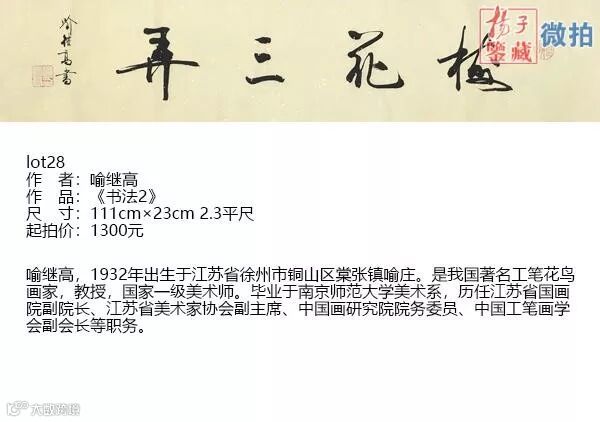 梅花三弄
喻继高书
扬子
鉴藏
微拍
lot28
作　者：喻继高
作　品：《书法2》
尺　寸：111cm×23cm 2.3平尺
起拍价：1300元
喻继高，1932年出生于江苏省徐州市铜山区棠张镇喻庄。是我国著名工笔花鸟
画家，教授，国家一级美术师。毕业于南京师范大学美术系，历任江苏省国画
院副院长、江苏省美术家协会副主席、中国画研究院院务委员、中国工笔画学
会副会长等职务。
大欧跨境